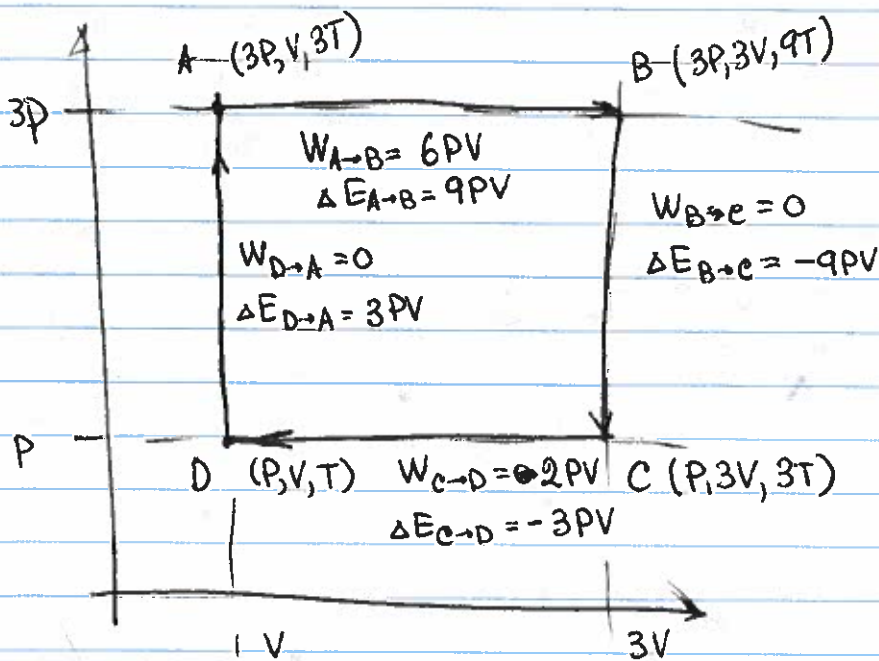 A (3P, V, 3T)
B (3P, 3V, 9T)
3P
W A→B = 6PV
ΔE A→B = 9PV
W B→C = 0
ΔE B→C = -9PV
W D→A = 0
ΔE D→A = 3PV
P
D (P, V, T)
W C→D = 2PV
C (P, 3V, 3T)
ΔE C→D = -3PV
1 V
3V